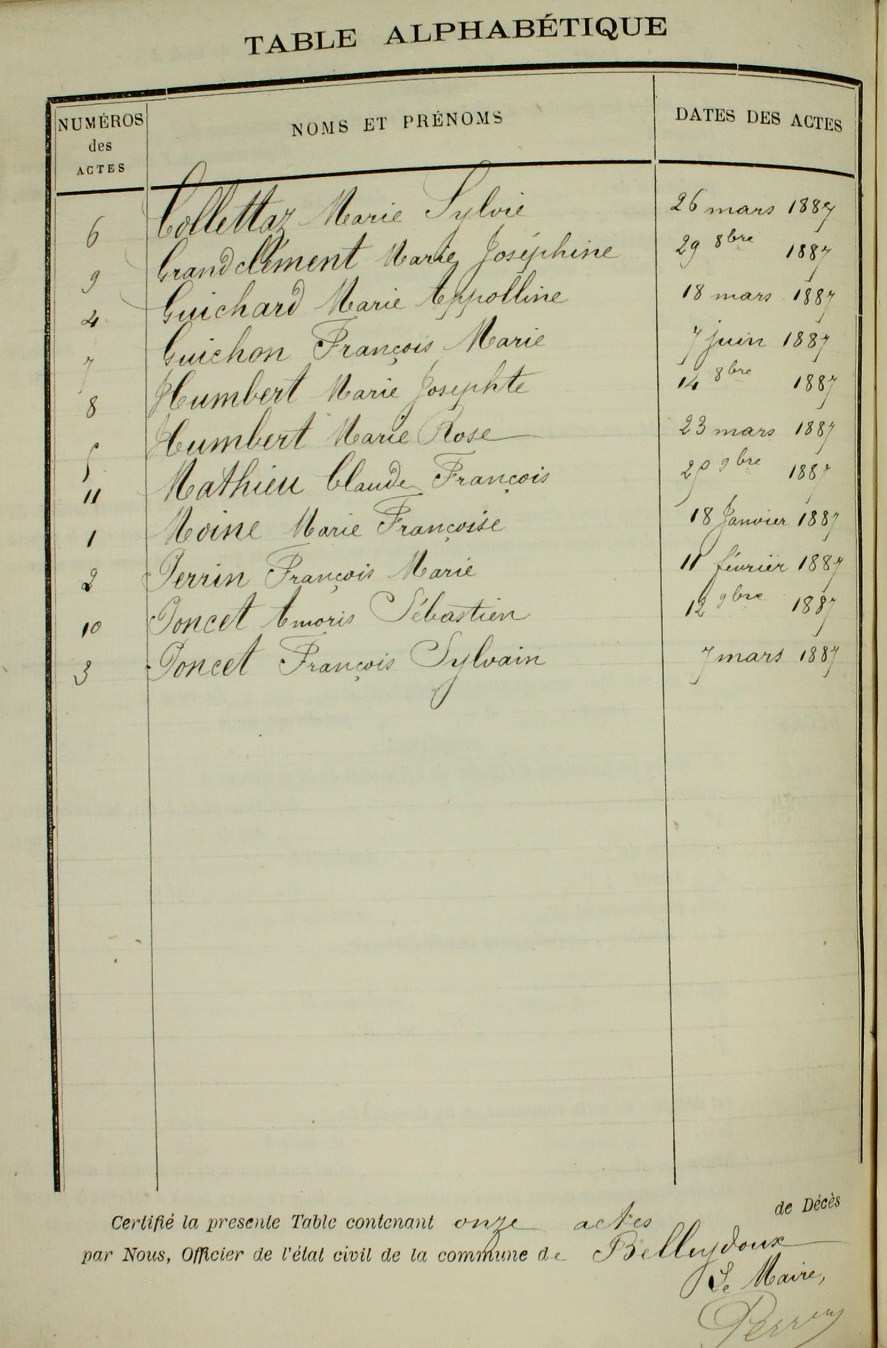 TABLE ALPHABÉTIQUE
NUMÉROS des ACTES NOMS ET PRÉNOMS DATES DES ACTES
6 Collettaz Marie Sylvie 26 mars 1887
9 Grandclément Marie Joséphine 29 8bre 1887
4 Guichard Marie Appolline 18 mars 1887
7 Guichon François Marie 7 juin 1887
8 Humbert Marie Josephte 14 8bre 1887
5 Humbert Marie Rose 23 mars 1887
11 Mathieu Claude François 9bre 1887
1 Moine Marie Françoise 18 Janvier 1887
2 Perrin François Marie 11 février 1887
10 Poncet Amoris Sébastien 12 9bre 1887
3 Poncet François Sylvain 7 mars 1887
Certifié la presente Table contenant onze actes de Décès
par Nous, Officier de l'état civil de la commune de Belleydoux
Le Maire,
Perrin